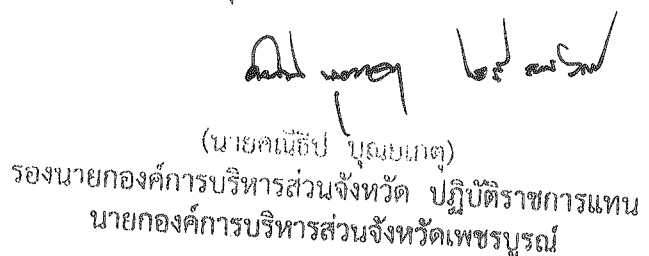 (นายคณีธิป บุณยเกตุ)
รองนายกองค์การบริหารส่วนจังหวัด ปฏิบัติราชการแทน
นายกองค์การบริหารส่วนจังหวัดเพชรบูรณ์